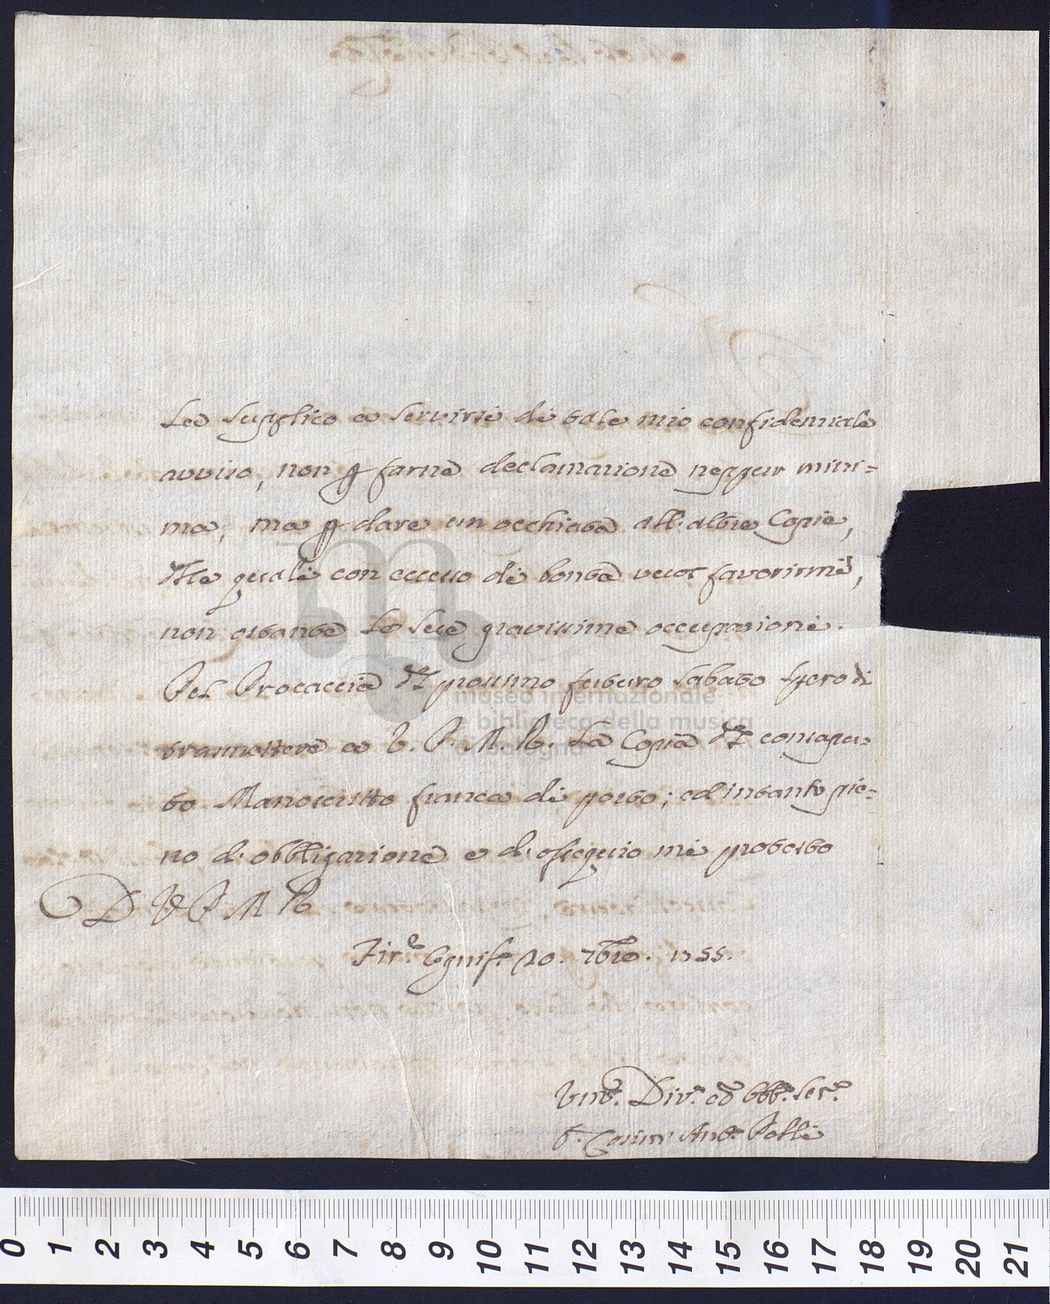 La supplico a servirsi di tale mio confidenziale
avviso, non p farne declamazione neppur mini=
ma, ma p dare un occhiata all' altre Copie,
che gesale con eccesso di bontà vuol favorirmi,
non ostante le sue gravissime occupazioni.
Pel Procaccia del prossimo futuro Sabato spero di
tramettere a V. P. M. R. La Copia del consapu=
to Manoscritto franca di porto; ed intanto pie=
no di obbligazione e di ossequio mi protesto
D V P M R
Fir.e Ognisti 20. 7bre. 1755.
Um. Div. ed Obb. Ser.
f. Ant. Polli
museo internazionale
e biblioteca della musica
di bologna
0 1 2 3 4 5 6 7 8 9 10 11 12 13 14 15 16 17 18 19 20 21